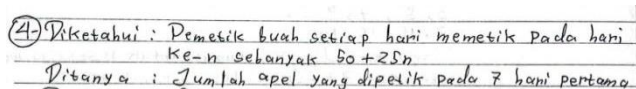 4. Diketahui : Pemetik buah setiap hari memetik pada hari
ke-n sebanyak 50 + 25n
Ditanya : Jumlah apel yang dipetik pada 7 hari pertama